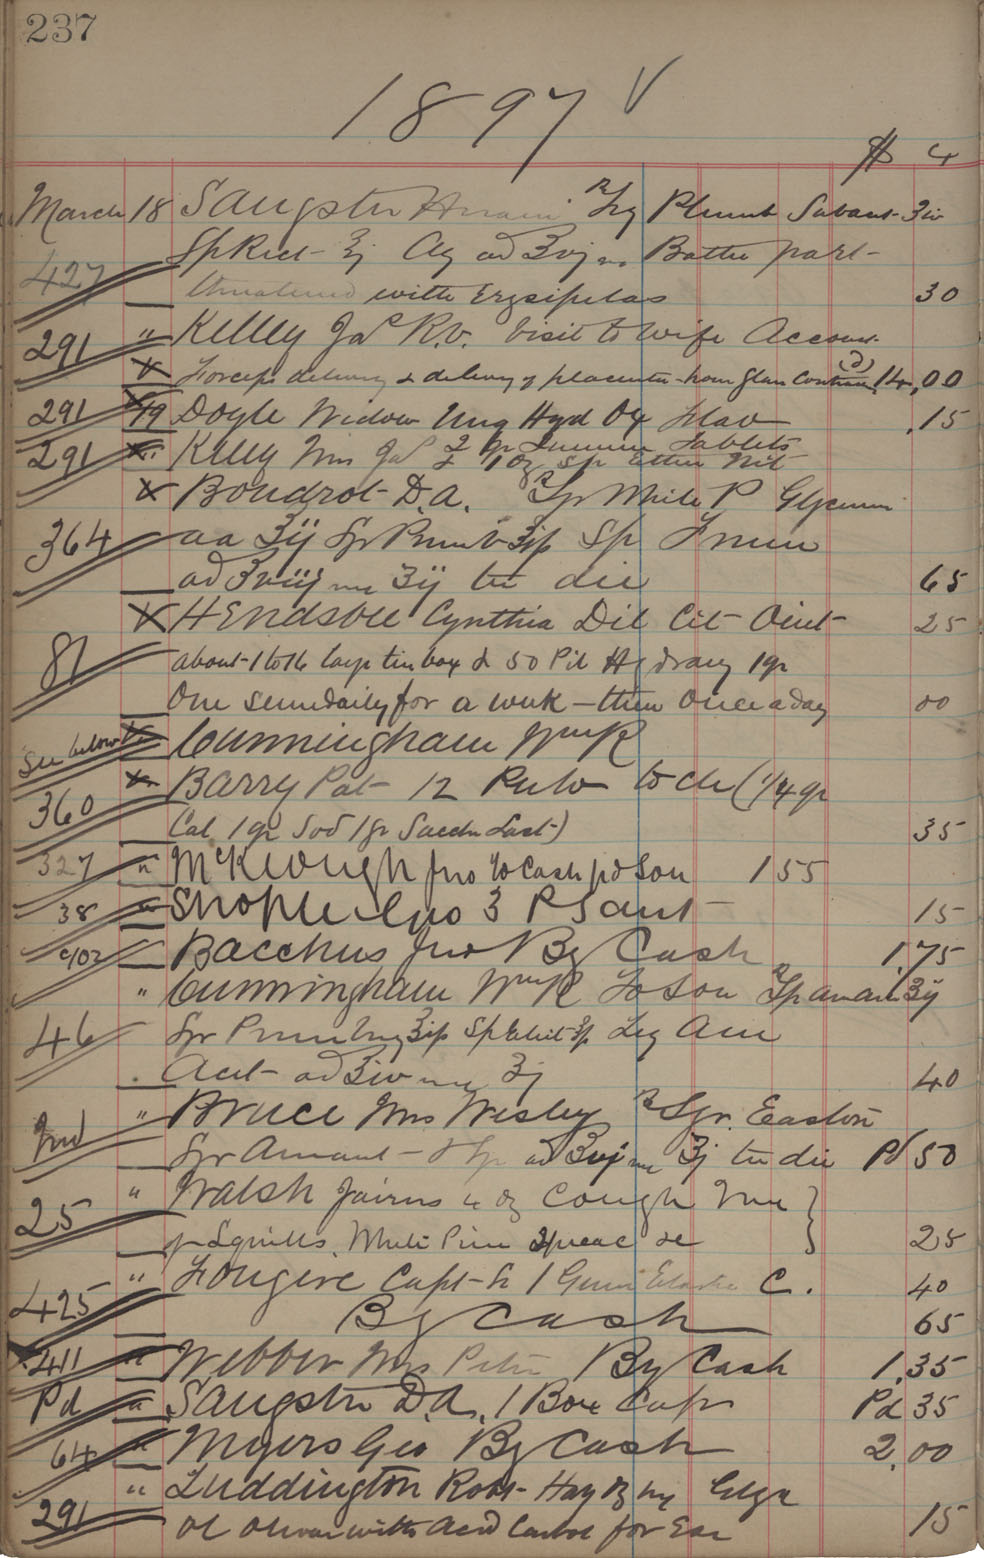 237
1897 √
$ ¢
March 18 Sangster Hiram ℞ Liq Plumb Subacet ʒiv
427 Sp Rect ʒj Aq ad ʒvj Bathe part
threatened with Erysipelas 30
291 " Kelley Jas R.V. Visit to Wife Accouc
Forceps delivery & delivery of placenta from 14,00
291 19 Doyle Widow Ung Hyd Ox Flav .15
291 " Kelly Mrs Jas 2 gr Quinine Tablets
& 1 oz Sp Ether Nit
Boudrot D.A. ℞ Syr White P Glycerin
364 aa ʒij Syr Prunt ʒip Sp
ad ʒviij ʒij ter die 65
Hendsbee Cynthia Dil Cit Oint 25
81 about 1 to 16 large tin box & 50 Pil Hydrarg 1 gr
One semidaily for a week - then once a day 00
See below Cunningham Wm R
360 Barry Pat 12 Pulv (1/4 gr
Cal 1 gr Sod 1 gr Sacch Lact) 35
327 " McKeough Jno To Cash pd Son 155
38 " Shople Geo 3 P Sant 15
402 Bacchus Jno By Cash 1.75
" Cunningham Wm R To Son ℞ Syr Aurant ʒij
46 Syr Prun Virg ʒip Sp ʒp Liq Am
Acet ad ʒiv ʒj 40
Ind " Bruce Mrs Wesley ℞ Syr. Easton
Syr Aurant ad ʒvj ʒj ter die Pd 50
25 " Walsh Jairus 4 oz Cough
Squills, White Pine Ipecac 25
425 " Fougere Capt 1 Gum Elastic C. 40
By Cash 65
411 " Webber Mrs Peter By Cash 1.35
Pd " Sangster D.A. 1 Box Caps Pd 35
64 " Myers Geo By Cash 2.00
" Luddington Robt
291 Ol Olivar with Acid Carbol for Ear 15